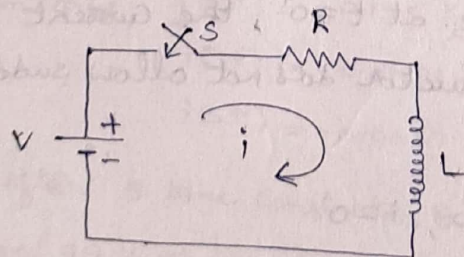 S
R
V
+
-
i
L